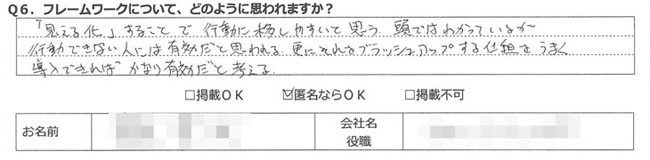 Q6．フレームワークについて、どのように思われますか？
「見える化」することで行動に移しやすいと思う 頭ではわかっているが
行動できない人には有効だと思われる。更にそれをブラッシュアップする仕組をうまく
導入できれば かなり有効だと考える。
□掲載ＯＫ ☑匿名ならＯＫ □掲載不可
お名前 会社名
役職